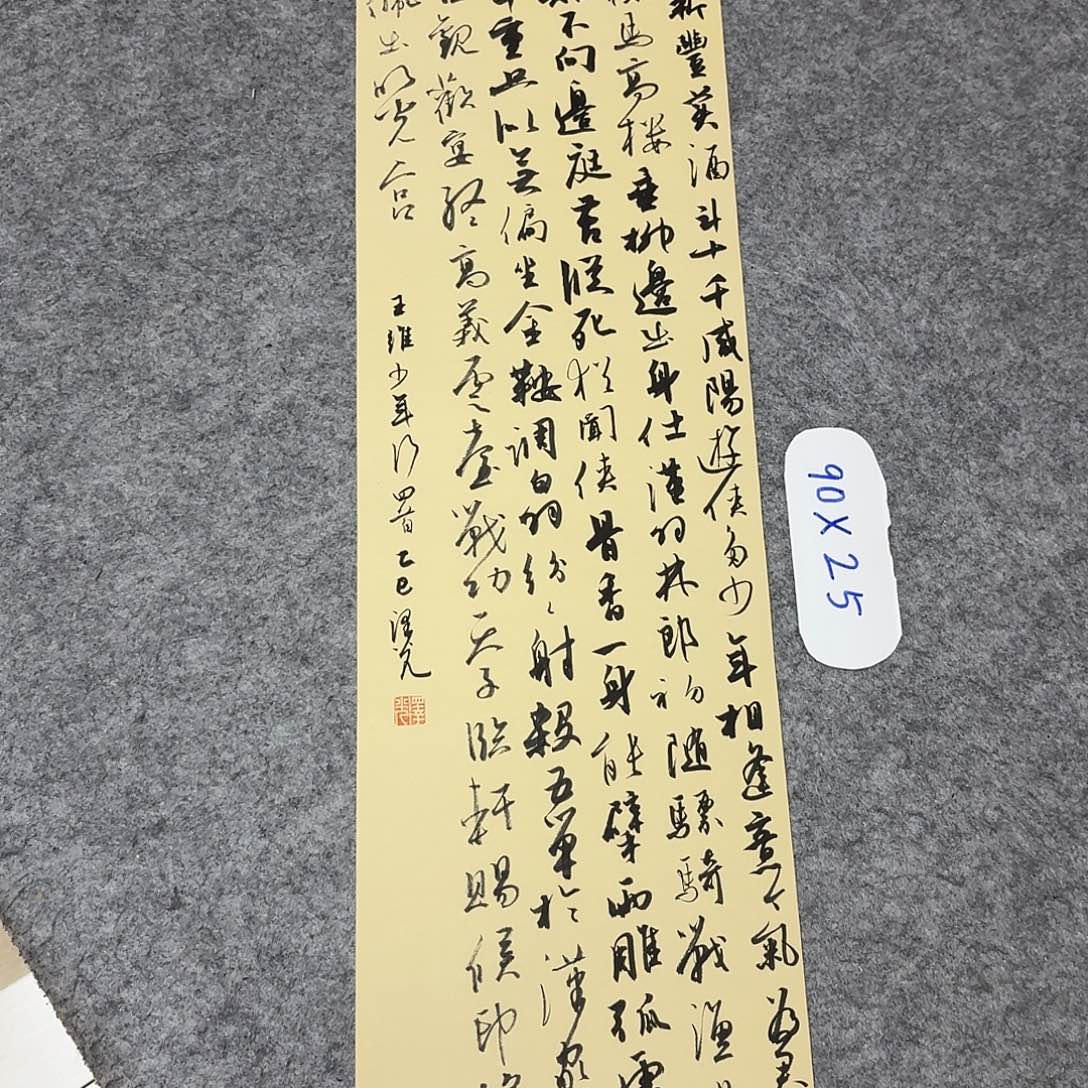 新豐美酒斗十千咸陽遊俠多少年相逢意氣為君
馬高楼垂柳邊出身仕漢羽林郎初隨驃騎戰漁
不向邊庭苦縱死猶聞俠骨香一身能擘兩雕弧虜
重只似無偏坐金鞍調白羽紛〻射殺五單於漢家
觀歡宴終高義雲臺戰功天子臨軒賜侯印
珮出明光宮
王維少年行四首乙巳澤元
90X25